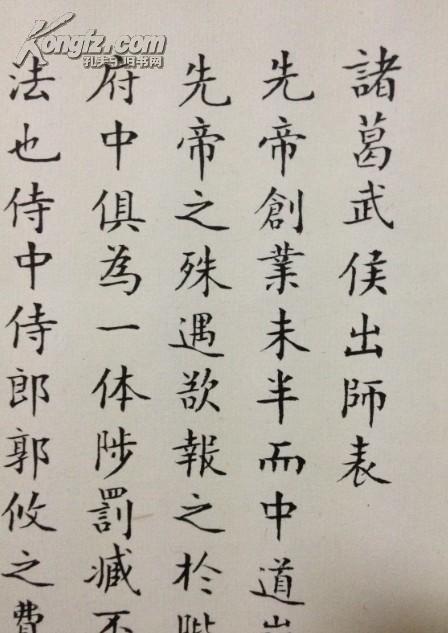 諸葛武侯出師表
先帝創業未半而中道
先帝之殊遇欲報之於陛
府中俱為一体陟罰臧不
法也侍中侍郎郭攸之費
Kongfz.com
孔夫子旧书网